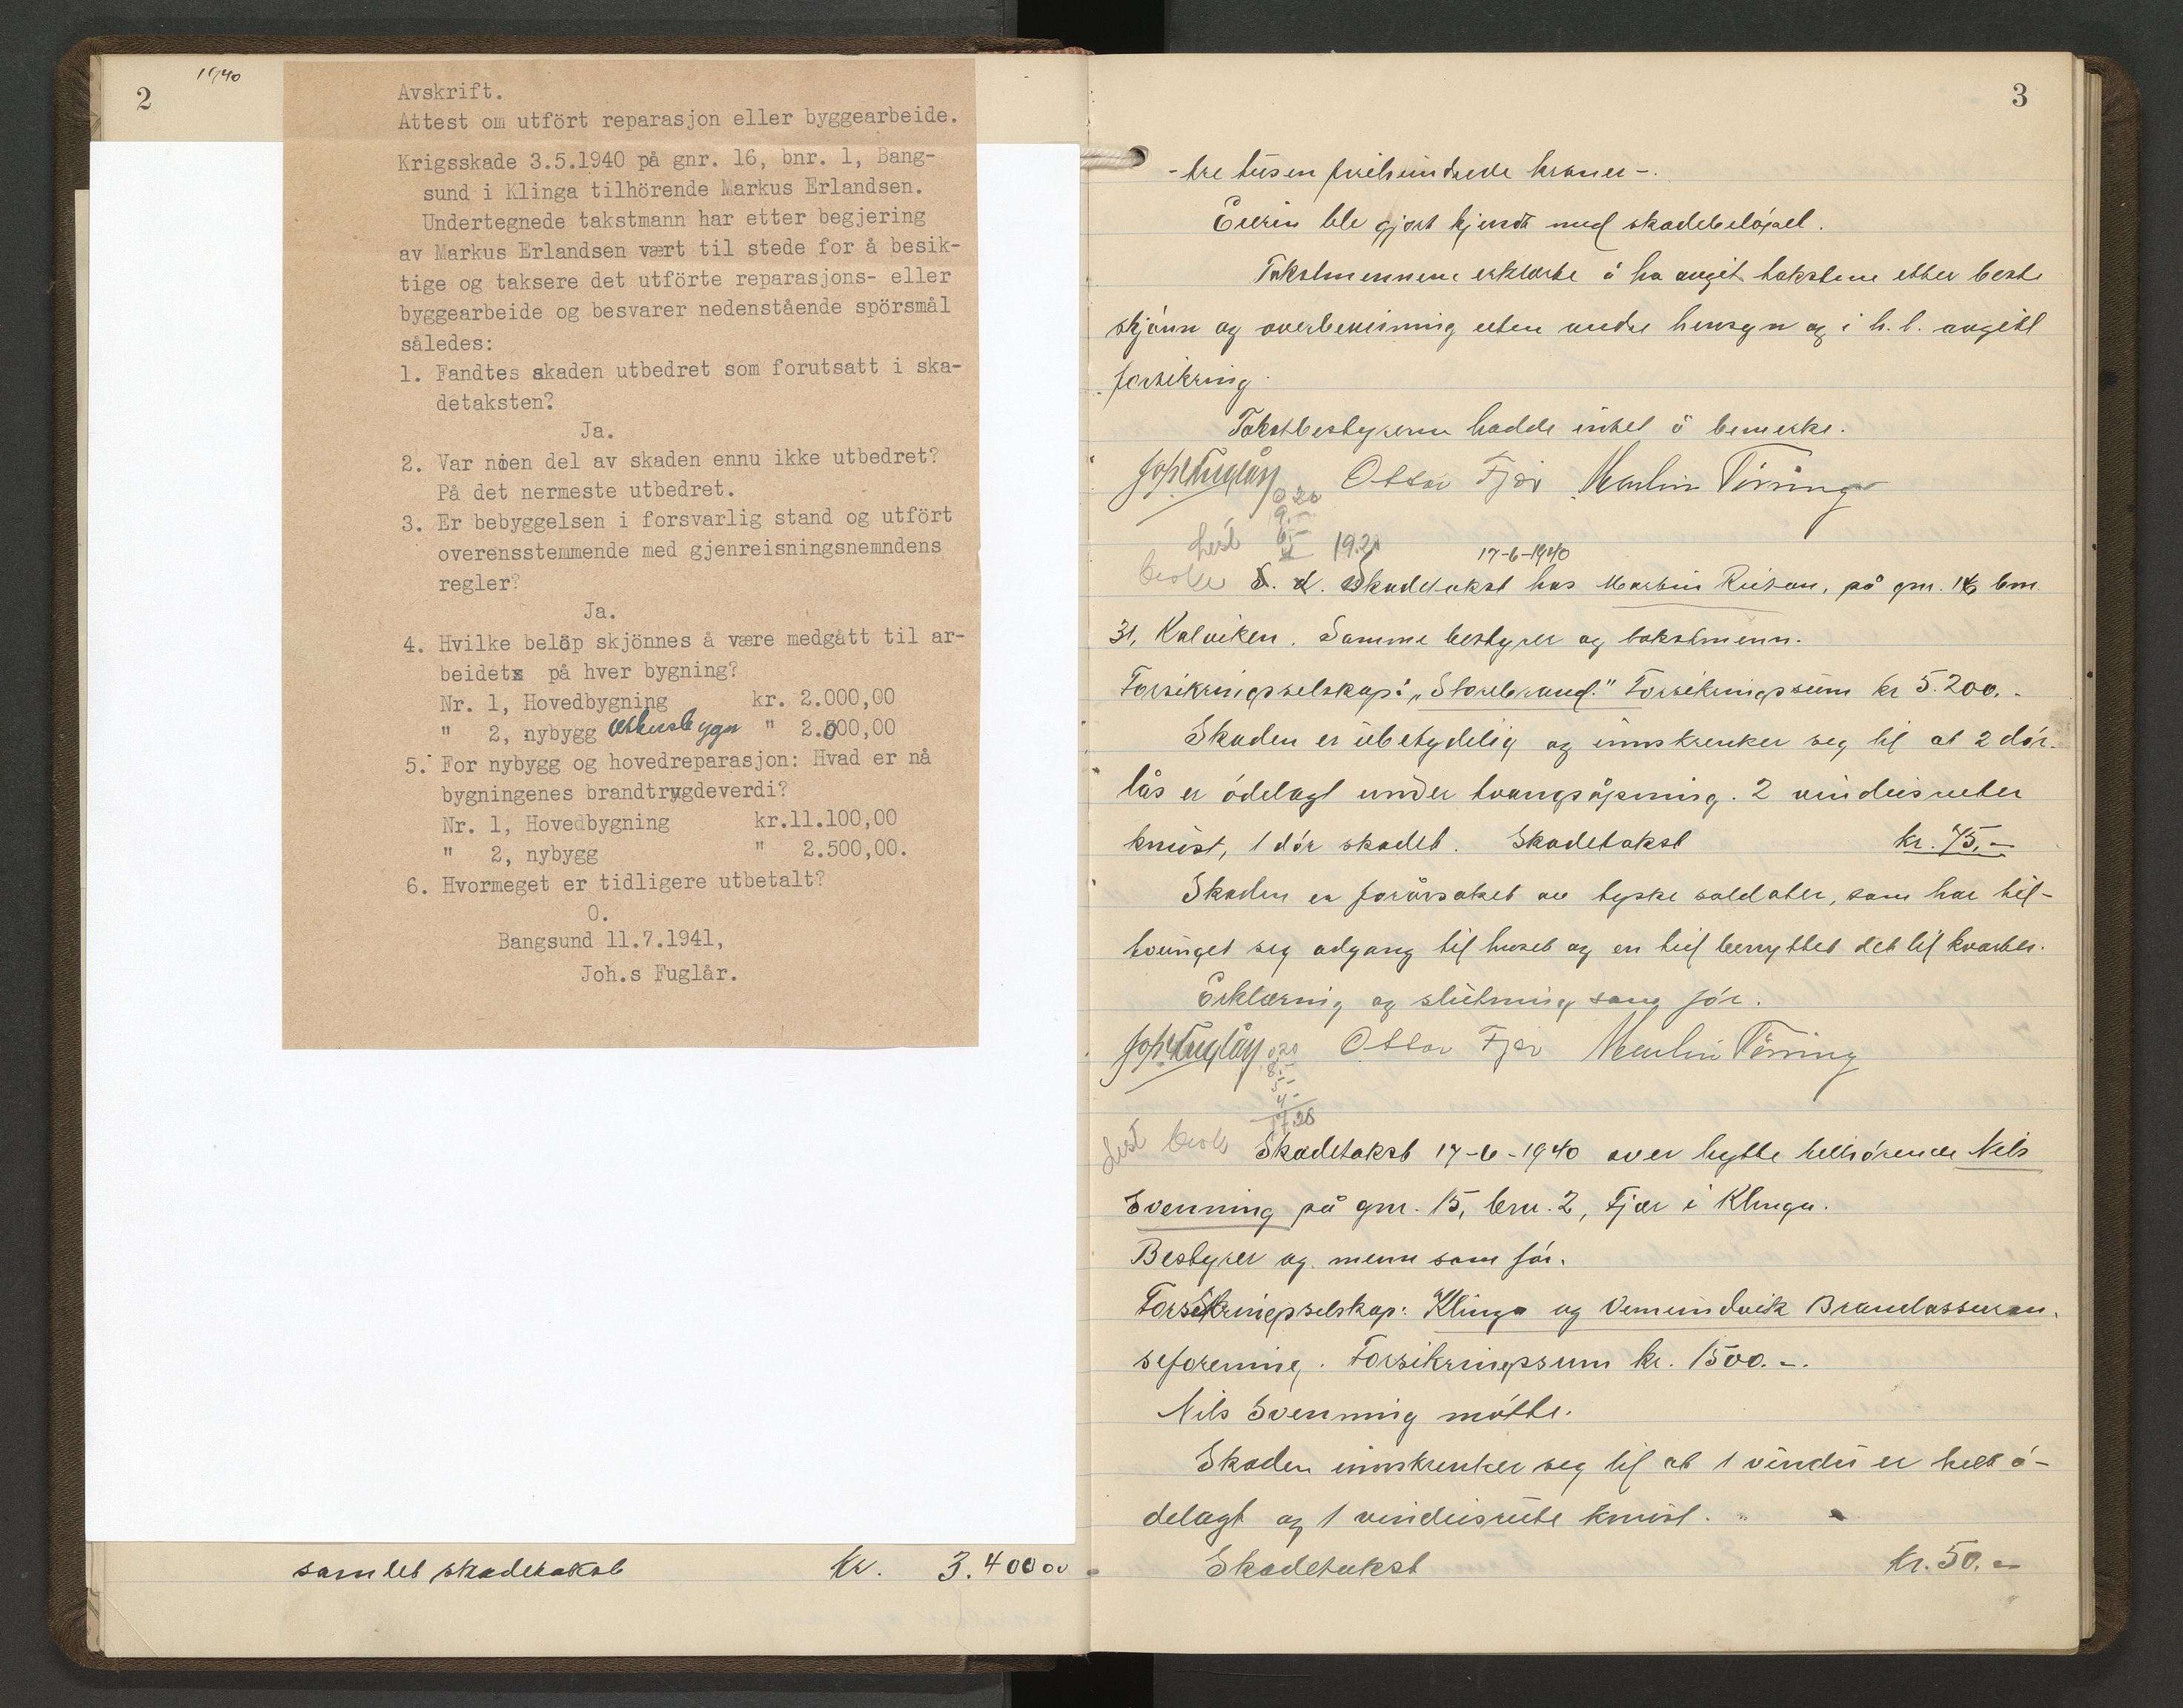 1940
2
Avskrift.
Attest om utfört reparasjon eller byggearbeide.
Krigsskade 3.5.1940 på gnr. 16, bnr. 1, Bang-
sund i Klinga tilhörende Markus Erlandsen.
Undertegnede takstmann har etter begjering
av Markus Erlandsen vært til stede for å besik-
tige og taksere det utförte reparasjons- eller
byggearbeide og besvarer nedenstående spörsmål
således:
1. Fandtes skaden utbedret som forutsatt i ska-
detaksten?
Ja.
2. Var noen del av skaden ennu ikke utbedret?
På det nermeste utbedret.
3. Er bebyggelsen i forsvarlig stand og utfört
overensstemmende med gjenreisningsnemndens
regler?
Ja.
4. Hvilke belöp skjönnes å være medgått til ar-
beidets på hver bygning?
Nr. 1, Hovedbygning kr. 2.000,00
" 2, nybygg uthusbygn " 2.000,00
5. For nybygg og hovedreparasjon: Hvad er nå
bygningenes brandtrygdeverdi?
Nr. 1, Hovedbygning kr.11.100,00
" 2, nybygg " 2.500,00.
6. Hvormeget er tidligere utbetalt?
O.
Bangsund 11.7.1941,
Joh.s Fuglår.
samlet skadetakst Kr. 3.400 00
3
- tre tusen firehundrede kroner -.
Eieren ble gjort kjendt med skadebelöpet.
Takstmennene erklærte å ha avgit takstene etter beste
skjönn og overbevisning uten andre hensyn og i h. t. avgitt
forsikring.
Takstbestyreren hadde intet å bemerke.
Johs Fuglår Ottar Fjær Martin Törring
0.20
9.-
6.-
19.20
17-6-1940
Skadetakst hos Martin Risan, på gnr. 16 bnr.
31, Kalviken. Samme bestyrer og takstmenn.
Forsikringsselskap: „Storebrand." Forsikringssum kr 5.200.-
Skaden er ubetydelig og innskrenker seg til at 2 dör-
lås er ödelagt under tvangsåpning. 2 vindusruter
knust, 1 dör skadet. Skadetakst kr. 75.-
Skaden er forårsaket av tyske soldater, som har til-
tvunget seg adgang til huset og en tid benyttet det til kvarter.
Erklæring og slutning som för.
Johs Fuglår Ottar Fjær Martin Törring
0.20
8.-
5-
4-
17.20
Skadetakst 17-6-1940 over hytte tilhörende Nils
Svenning på gnr. 15, bnr. 2, Fjær i Klinga.
Bestyrer og menn som för.
Forsikringsselskap: Klinga og Vemundvik Brandassuran-
seforening. Forsikringssum kr. 1500.-.
Nils Svenning mötte.
Skaden innskrenker seg til at 1 vindu er helt ö-
delagt og 1 vindusrute knust.
Skadetakst kr. 50.-